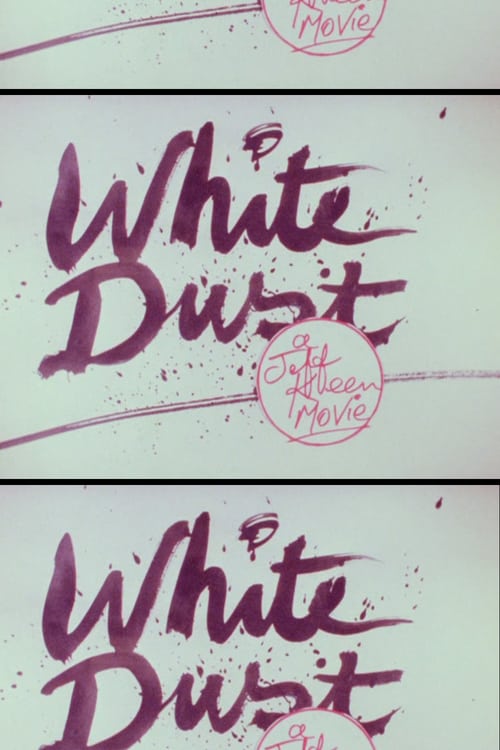 Keen
MOVie
White
Dust
a
Jeff
Keen
MOVie
White
Dust
a